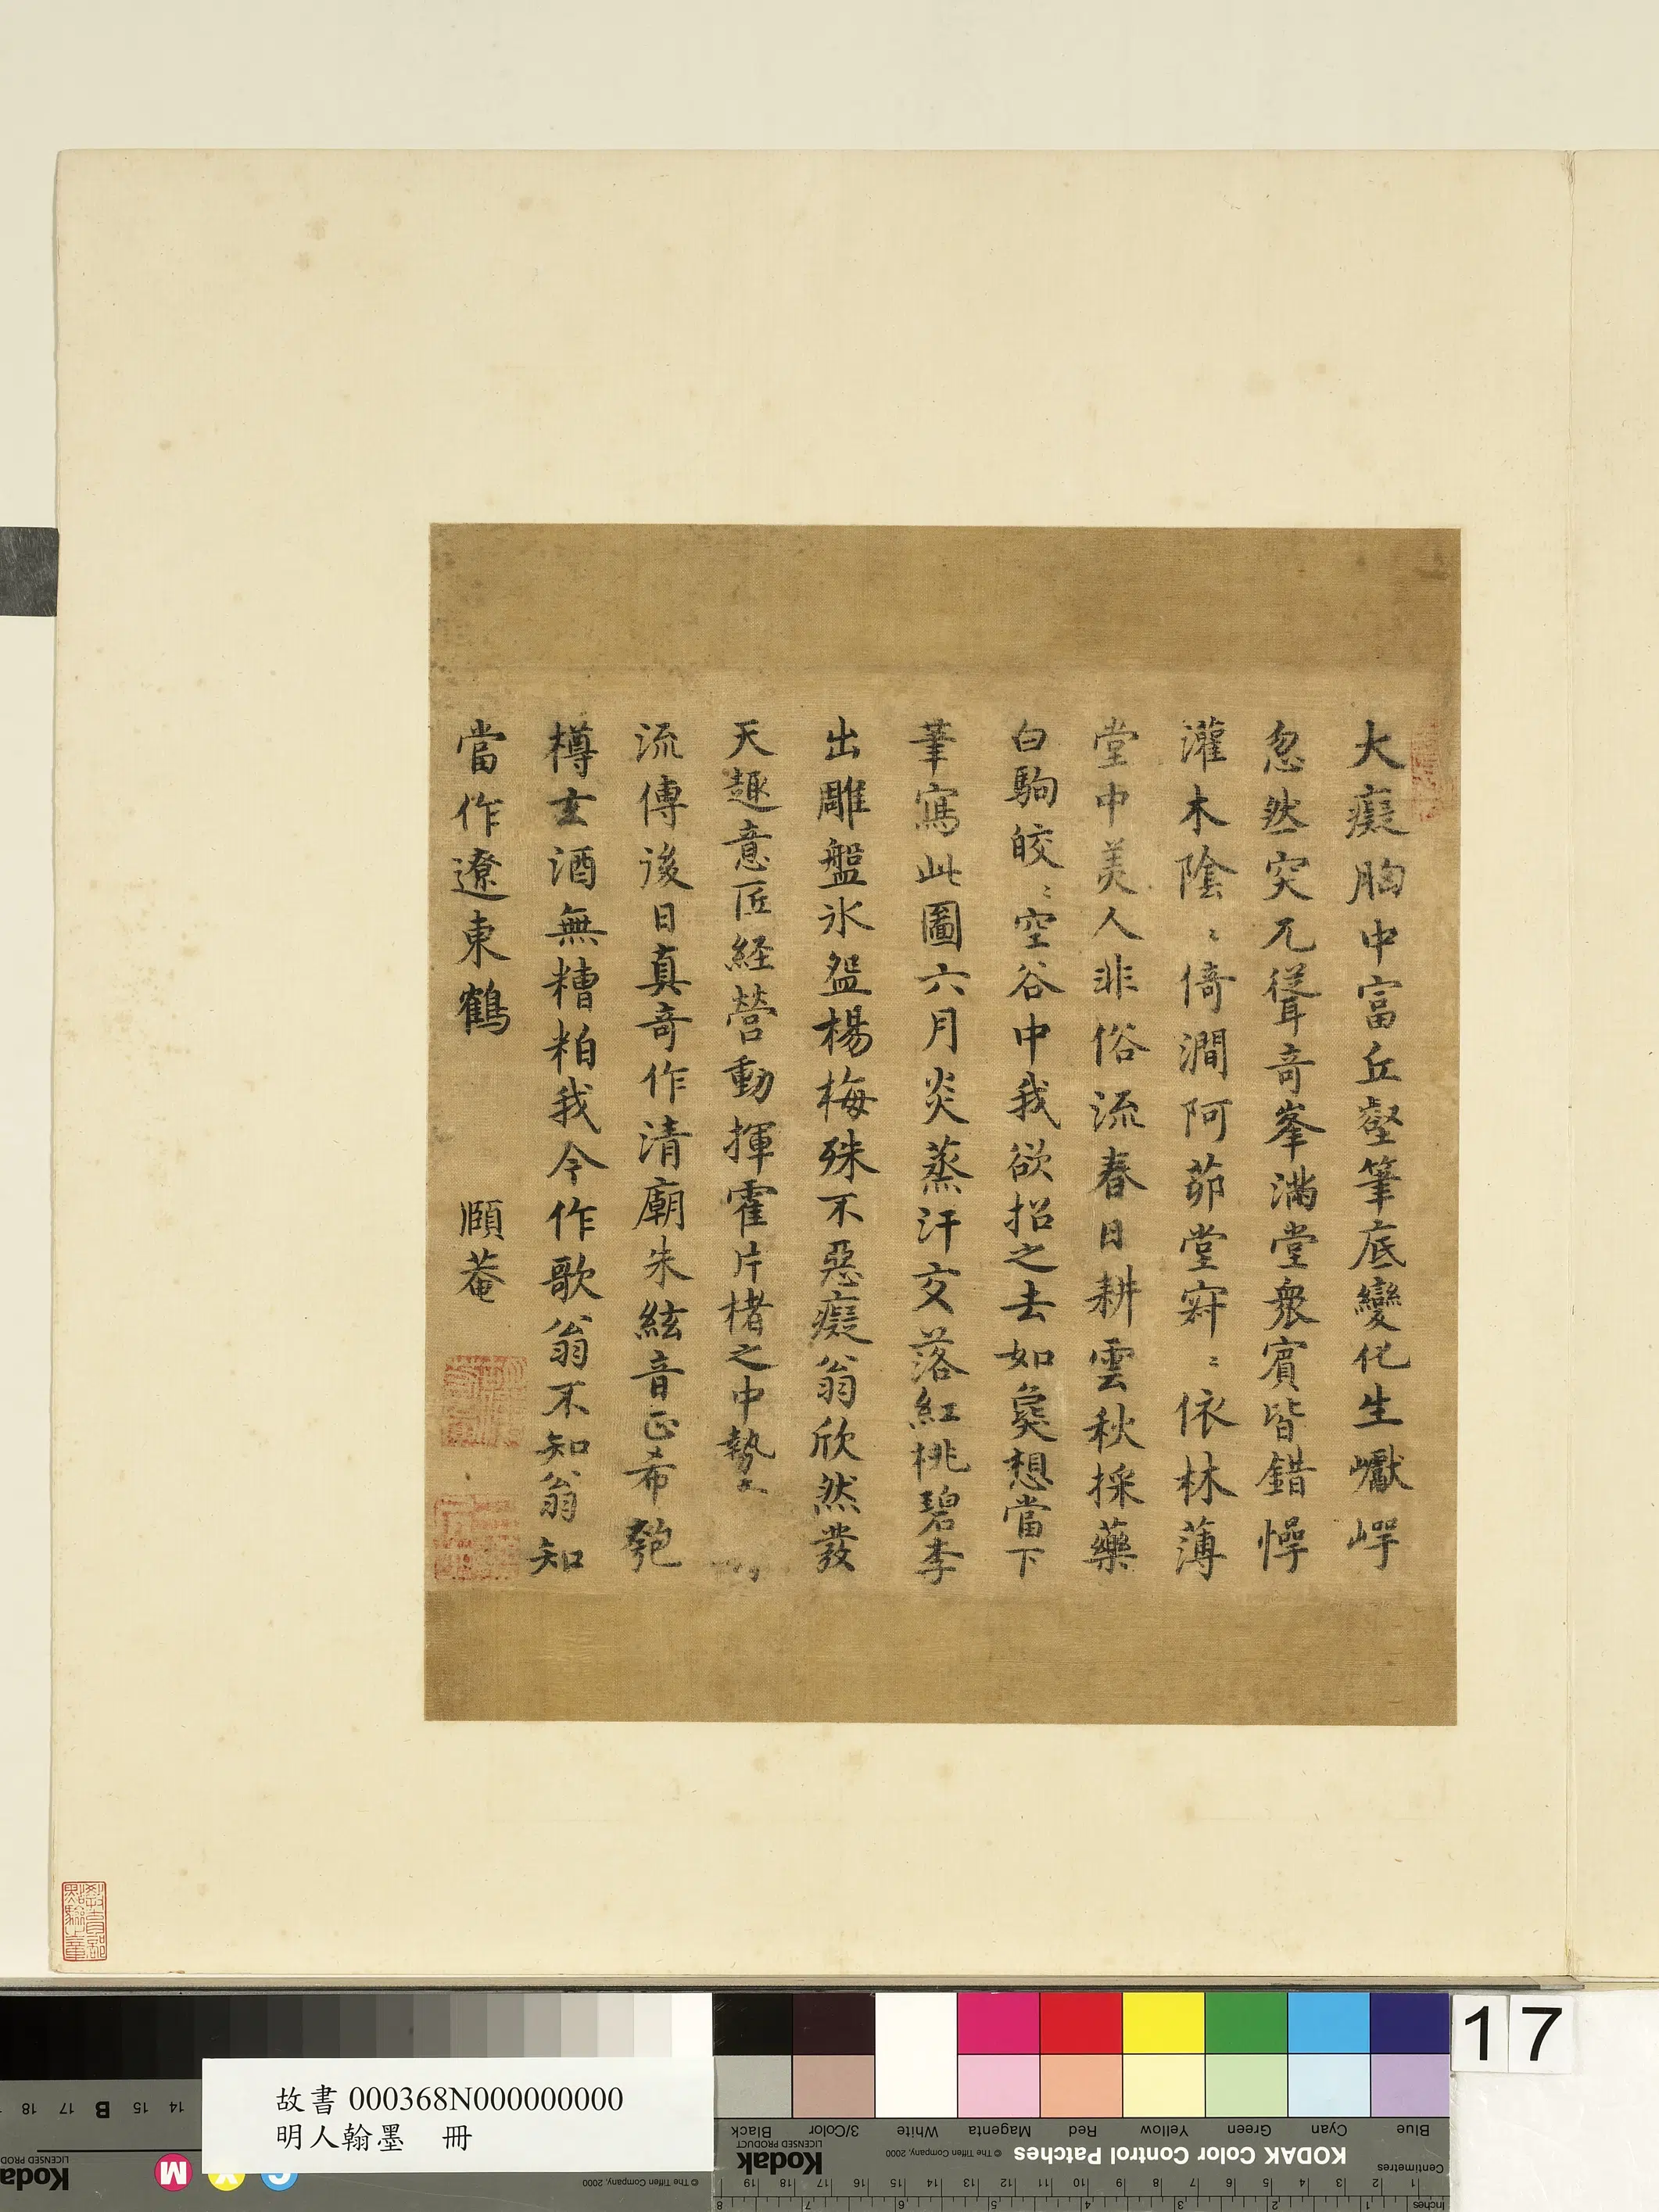 大癡胸中富丘壑筆底變化生巘崿
忽然突兀聳奇峯滿堂衆賓皆錯愕
灌木陰〻倚澗阿茆堂𡧯〻依林薄
堂中美人非俗流春日耕雲秋採藥
白駒皎〻空谷中我欲招之去如𠔃想當下
筆寫此圖六月炎蒸汗交落紅桃碧李
出雕盤氷盌楊梅殊不惡癡翁欣然發
天趣意匠経營動揮霍片楮之中勢
流傳後日真奇作清廟朱絃音正希匏
樽玄酒無糟粕我今作歌翁不知翁知
當作遼東鶴
頤菴
教育部
點驗之章
17
故書 000368N000000000
明人翰墨 冊
KODAK Color Control Patches
Kodak
LICENSED PRODUCT
© The Tiffen Company, 2000
Blue
Cyan
Green
Yellow
Red
Magenta
White
3/Color
Black
Centimetres
Inches
1 2 3 4 5 6 7 8 9 10 11 12 13 14 15 16 17 18 19
Kodak
LICENSED PRODUCT
© The Tiffen Company, 2000
14 15 B 17 18
M
Y
C